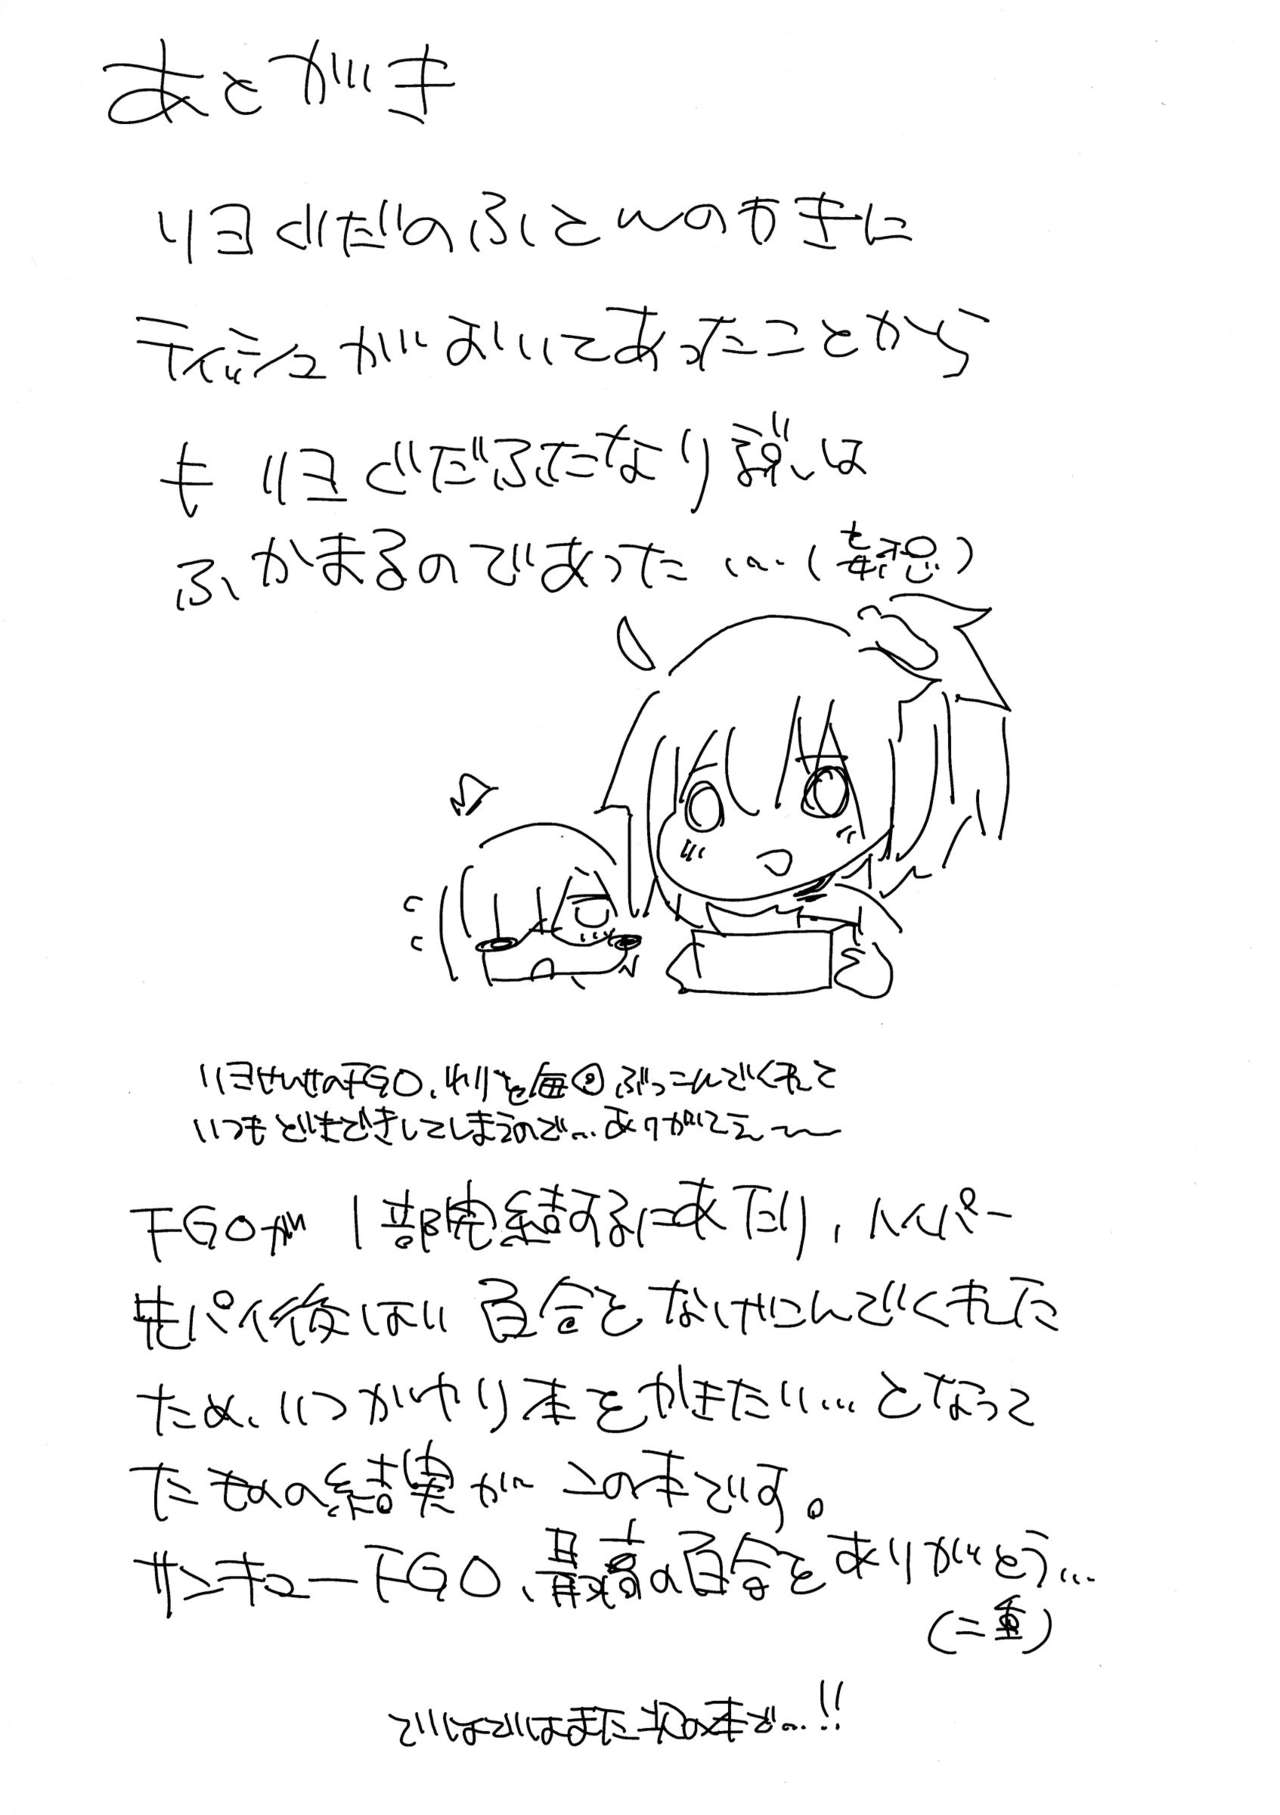 あとがき
リヨぐだのふとんのわきに
ティッシュがおいてあったことから
も リヨぐだふたなり説は
ふかまるのであった …(妄想)
リヨせんせのFGO、わりと毎回ぶっこんでくれて
いつもどきどきしてしまうので… ありがてえ〜
FGOが1部完結するにあたり、ハイパー
先パイ後はい百合をなげこんでくれた
ため、いつかやり本をかきたい…となって
たものの結実が この本です。
サンキューFGO、最高の百合をありがとう…
(二重)
ではではまた次の本で…!!